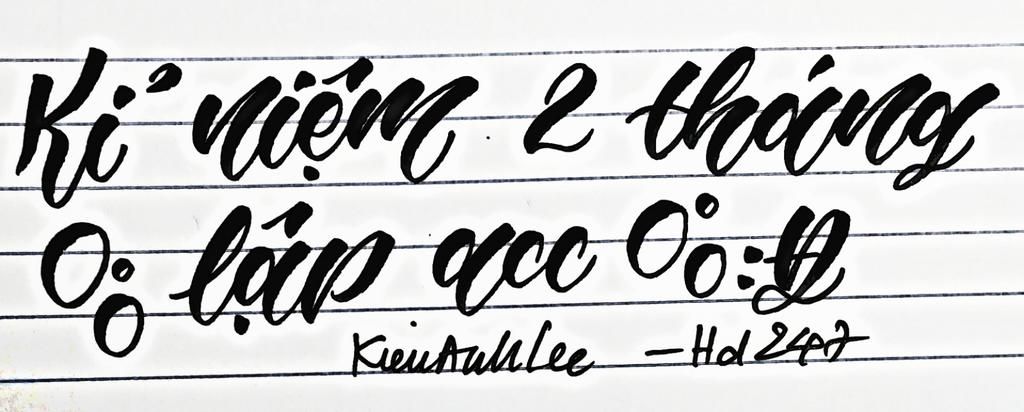 Kỉ niệm 2 tháng
lập acc :Đ
KienAnhLee - Hd247